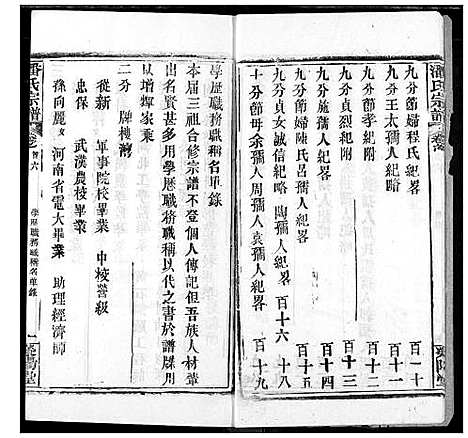 潘氏宗譜
卷
九分節婦程氏紀畧 百一十
九分王太孺人紀略 百十一
九分節孝紀附 百十二
九分貞節紀附
九分施孺人紀畧 百十四
九分節婦陳氏呂孺人紀畧
九分貞女誠信紀略 百十六
陶孺人紀畧 百十八
十分節母余孺人周孺人袁孺人紀畧 百十九
學歷職務職稱名單錄
本届三祖合修宗譜不登個人傳記但吾族人材輩
出名賢甚多用學歷職務職稱以代之書於譜牒用
以增輝家乘
二分 牌樓灣
從新 軍事院校畢業 中校營級
忠保 武漢農校畢業
孫向麗 女 河南省電大畢業 助理經濟師
潘氏宗譜
卷首六
學歷職務職稱名單錄
一
滎陽堂